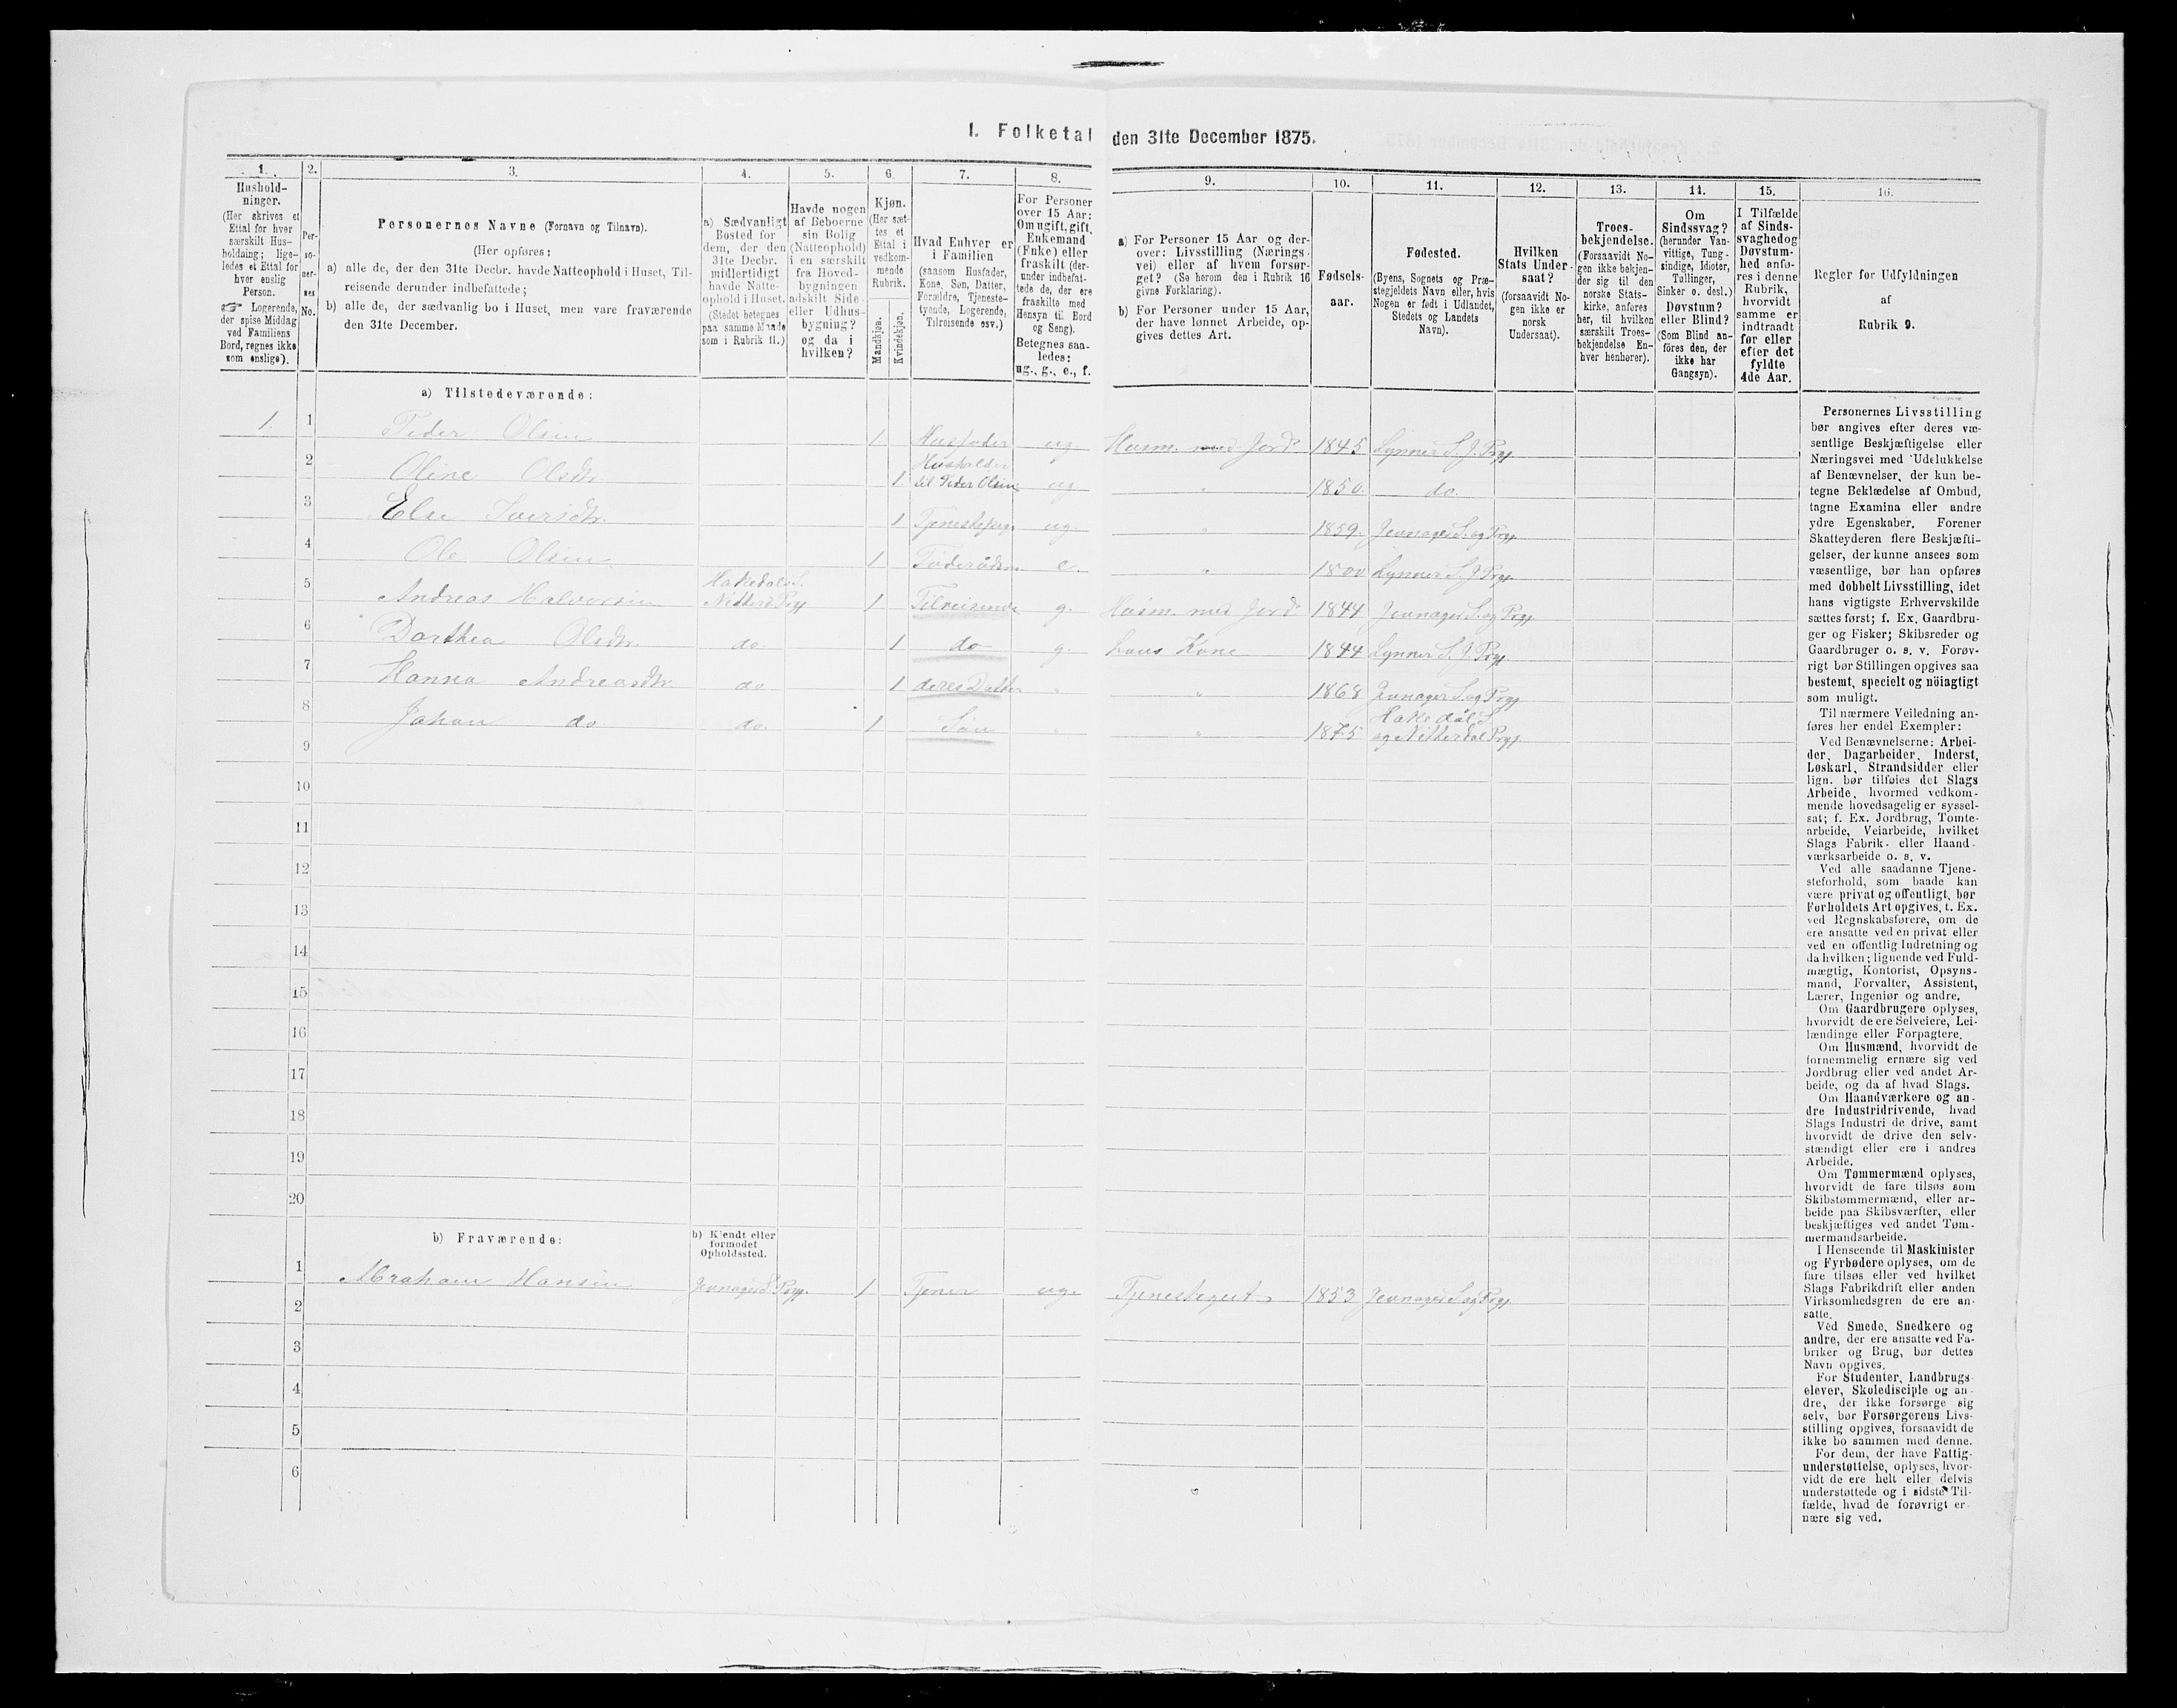 I. Folketal den 31te December 1875.
1.
Hushold-
ninger.
(Her skrives et
Ettal for hver
særskilt Hus-
holdning; lige-
ledes et Ettal for
hver enslig
Person.
☞ Logerende,
der spise Middag
ved Familiens
Bord, regnes ikke
som enslige).
2.
Per-
so-
ner-
nes
No.
3.
Personernes Navne (Fornavn og Tilnavn).
(Her opføres:
a) alle de, der den 31te Decbr. havde Natteophold i Huset, Til-
reisende derunder indbefattede;
b) alle de, der sædvanlig bo i Huset, men vare fraværende
den 31te December.
4.
a) Sædvanligt
Bosted for
dem, der den
31te Decbr.
midlertidigt
havde Natte-
ophold i Huset.
(Stedet betegnes
paa samme Maade
som i Rubrik 11.)
5.
Havde nogen
af Beboerne
sin Bolig
(Natteophold)
i en særskilt
fra Hoved-
bygningen
adskilt Side-
eller Udhus-
bygning?
og da i
hvilken?
6.
Kjøn.
(Her sæt-
tes et
Ettal i
vedkom-
mende
Rubrik.
Mandskjøn.
Kvindekjøn.
7.
Hvad Enhver er
i Familien
(saasom Husfader,
Kone, Søn, Datter,
Forældre, Tjeneste-
tyende, Logerende,
Tilreisende osv.)
8.
For Personer
over 15 Aar:
Om ugift, gift,
Enkemand
(Enke) eller
fraskilt (der-
under indbefat-
tede de, der ere
fraskilte med
Hensyn til Bord
og Seng).
Betegnes saa-
ledes:
ug., g., e., f.
9.
a) For Personer 15 Aar og der-
over: Livsstilling (Nærings-
vei) eller af hvem forsør-
get? (Se herom den i Rubrik 16
givne Forklaring).
b) For Personer under 15 Aar,
der have lønnet Arbeide, op-
gives dettes Art.
10.
Fødsels-
aar.
11.
Fødested.
(Byens, Sognets og Præ-
stegjeldets Navn eller, hvis
Nogen er født i Udlandet,
Stedets og Landets
Navn).
12.
Hvilken
Stats Under-
saat?
(forsaavidt No-
gen ikke er
norsk
Undersaat).
13.
Troes-
bekjendelse.
(Forsaavidt No-
gen ikke bekjen-
der sig til den
norske Stats-
kirke, anføres
her, til hvilken
særskilt Troes-
bekjendelse En-
hver henhører).
14.
Om
Sindssvag?
(herunder Van-
vittige, Tung-
sindige, Idioter,
Tullinger,
Sinker o. desl.)
Døvstum?
eller Blind?
(Som Blind an-
føres den, der
ikke har
Gangsyn).
15.
I Tilfælde
af Sinds-
svaghed og
Døvstum-
hed anfø-
res i denne
Rubrik,
hvorvidt
samme er
indtraadt
før eller
efter det
fyldte
4de Aar.
16.
Regler for Udfyldningen
af
Rubrik 9.
a) Tilstedeværende:
1. 1 Peder Olsen 1. Husfader ug. Husm. med Jord 1845 Lynner S. J. Prgj
2 Oline Olsdtr. 1. Husholder til Peder Olsen ug. " 1850. do.
3 Else Iversdtr. 1 Tjenestepige ug. " 1859. Jevnager S. og Prgj
4 Ole Olsen 1 Føderådsm e. " 1800 Lynner S. J. Prgj.
5 Andreas Halvorsen Hakedals S. Nitted. Prgj 1 Tilreisende g. Husm. med Jord 1844 Jevnager S. og Prgj
6 Dorthea Olsdtr. do. 1 do g. hans Kone 1844 Lynner S. J. Prgj
7 Hanna Andreasdtr. do 1 deres Datter " " 1868 Jevnager S. og Prgj
8 Johan do. do. 1 Søn " " 1875 Hakedal S. og Nitterdal Prgj.
9
10
11
12
13
14
15
16
17
18
19
20
b) Fraværende:
b) Kjendt eller
formodet
Opholdssted.
1 Abraham Hansen Jevnager S. Prgj. 1 Tjener ug. Tjenestegut 1853 Jevnager S. og Prgj
2
3
4
5
6
Personernes Livsstilling
bør angives efter deres væ-
sentlige Beskjæftigelse eller
Næringsvei med Udelukkelse
af Benævnelser, der kun be-
tegne Beklædelse af Ombud,
tagne Examina eller andre
ydre Egenskaber. Forener
Skatteyderen flere Beskjæfti-
gelser, der kunne ansees som
væsentlige, bør han opføres
med dobbelt Livsstilling, idet
hans vigtigste Erhvervskilde
sættes først; f. Ex. Gaardbru-
ger og Fisker; Skibsreder og
Gaardbruger o. s. v. Forøv-
rigt bør Stillingen opgives saa
bestemt, specielt og nöiagtigt
som muligt.
Til nærmere Veiledning an-
føres her endel Exempler:
Ved Benævnelserne: Arbei-
der, Dagarbeider, Inderst,
Løskarl, Strandsidder eller
lign. bør tilføies det Slags
Arbeide, hvormed vedkom-
mende hovedsagelig er syssel-
sat; f. Ex. Jordbrug, Tomte-
arbeide, Veiarbeide, hvilket
Slags Fabrik- eller Haand-
værksarbeide o. s. v.
Ved alle saadanne Tjene-
steforhold, som baade kan
være privat og offentligt, bør
Forholdets Art opgives, t. Ex.
ved Regnskabsførere, om de
ere ansatte ved en privat eller
ved en offentlig Indretning og
da hvilken; lignende ved Fuld-
mægtig, Kontorist, Opsyns-
mand, Forvalter, Assistent,
Lærer, Ingeniør og andre.
Om Gaardbrugere oplyses,
hvorvidt de ere Selveiere, Lei-
lændinge eller Forpagtere.
Om Husmænd, hvorvidt de
fornemmelig ernære sig ved
Jordbrug eller ved andet Ar-
beide, og da af hvad Slags.
Om Haandværkere og an-
dre Industridrivende, hvad
Slags Industri de drive, samt
hvorvidt de drive den selv-
stændigt eller ere i andres
Arbeide.
Om Tømmermænd oplyses,
hvorvidt de fare tilsøs som
Skibstømmermænd, eller ar-
beide paa Skibsværfter, eller
beskjæftiges ved andet Tøm-
mermandsarbeide.
I Henseende til Maskinister
og Fyrbødere oplyses, om de
fare tilsøs eller ved hvilket
Slags Fabrikdrift eller anden
Virksomhedsgren de ere an-
satte.
Ved Smede, Snedkere og
andre, der ere ansatte ved Fa-
briker og Brug, bør dettes
Navn opgives.
For Studenter, Landbrugs-
elever, Skoledisciple og an-
dre, der ikke forsørge sig
selv, bør Forsørgerens Livs-
stilling opgives, forsaavidt de
ikke bo sammen med denne.
For dem, der have Fattig-
understøttelse, oplyses, hvor-
vidt de ere helt eller delvis
understøttede og i sidste Til-
fælde, hvad de forøvrigt er-
nære sig ved.